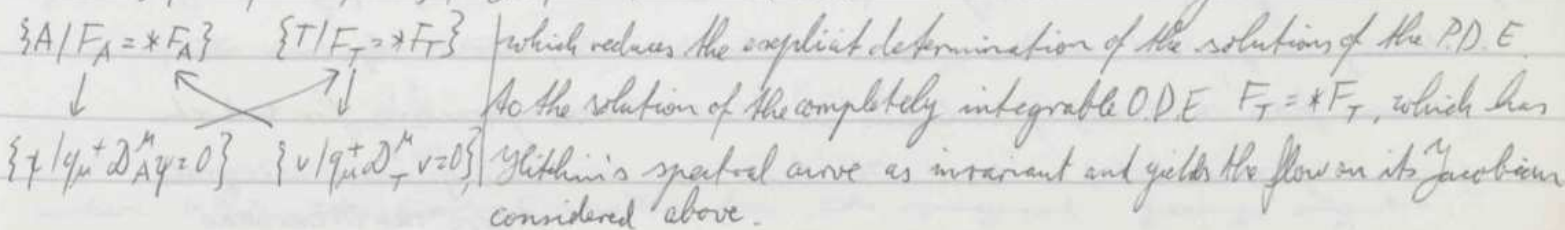 {A/F_A = *F_A} {T/F_T = *F_T} which reduces the explicit determination of the solutions of the P.D.E.
to the solution of the completely integrable O.D.E F_T = *F_T, which has
{ψ/q_μ^+ D_A^μ ψ=0} {v/q_μ^+ D_T^μ v=0} Hitchin's spectral curve as invariant and yields the flow on its Jacobian
considered above.